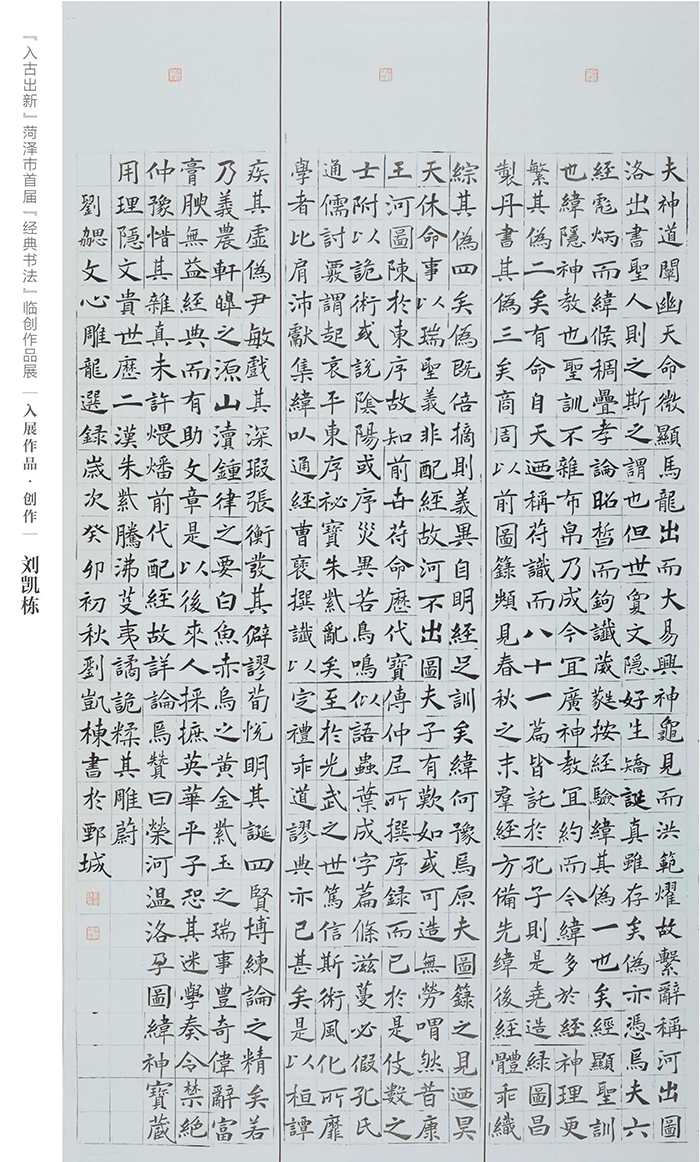 夫神道闡幽天命微顯馬龍出而大易興神龜見而洪範燿故繫辭稱河出圖
洛出書聖人則之斯之謂也但世夐文隱好生矯誕真雖存矣偽亦憑焉夫六
經彪炳而緯候稠疊孝論昭晳而鉤讖葳蕤按經驗緯其偽一也矣經顯聖訓
也緯隱神教也聖訓不雜布帛乃成今宜廣神教宜約而今緯多於經神理更
繁其偽二矣有命自天迺稱符讖而八十一篇皆託於孔子則是堯造綠圖昌
製丹書其偽三矣商周以前圖籙頻見春秋之末羣經方備先緯後經體乖織
綜其偽四矣偽既倍摘則義異自明經足訓矣緯何豫焉原夫圖籙之見迺昊
天休命事以瑞聖義非配經故河不出圖夫子有歎如或可造無勞喟然昔康
王河圖陳於東序故知前世符命歷代寶傳仲尼所撰序録而已於是伎數之
士附以詭術或說陰陽或序災異若鳥鳴似語蟲葉成字篇條滋蔓必假孔氏
通儒討覈謂起哀平東序祕寶朱紫亂矣至於光武之世篤信斯術風化所靡
學者比肩沛獻集緯以通經曹褒撰讖以定禮乖道謬典亦已甚矣是以桓譚
疾其虛偽尹敏戲其深瑕張衡發其僻謬荀悅明其誕四賢博練論之精矣若
乃羲農軒皞之源山瀆鍾律之要白魚赤烏之黃金紫玉之瑞事豐奇偉辭富
膏腴無益經典而有助文章是以後來人採摭英華平子恐其迷學奏令禁絕
仲豫惜其雜真未許煨燔前代配經故詳論焉贊曰榮河温洛孕圖緯神寶藏
用理隱文貴世歷二漢朱紫騰沸芟夷譎詭糅其雕蔚
劉勰文心雕龍選録歲次癸卯初秋劉凱棟書於鄄城
『入古出新』菏泽市首届『经典书法』临创作品展｜入展作品·创作｜刘凯栋